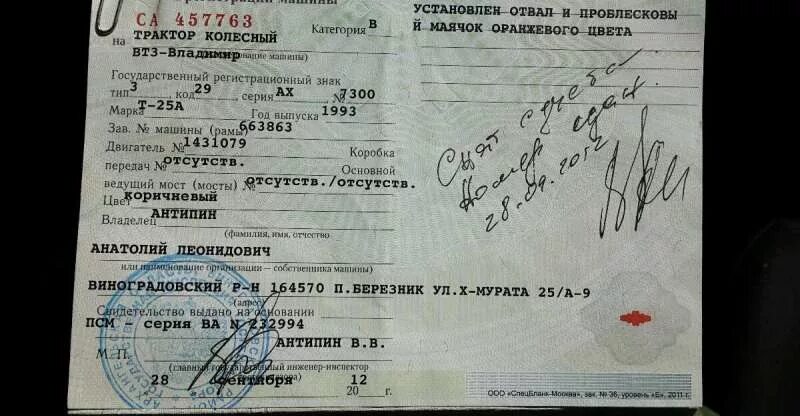 регистрации машины
СА 457763
на ТРАКТОР КОЛЕСНЫЙ Категория В
ВТЗ-Владимир
(наименование машины)
Государственный регистрационный знак
тип 3 код 29 серия АХ № 7300
Марка Т-25А Год выпуска 1993
Зав. № машины (рамы) 663863
Двигатель № 1431079 Коробка
передач № отсутств. Основной
ведущий мост (мосты) № отсутств./отсутств.
Цвет коричневый
Владелец АНТИПИН
(фамилия, имя, отчество
АНАТОЛИЙ ЛЕОНИДОВИЧ
или наименование организации – собственника машины)
ВИНОГРАДОВСКИЙ Р-Н 164570 П.БЕРЕЗНИК УЛ.Х-МУРАТА 25/А-9
(адрес)
Свидетельство выдано на основании
ПСМ - серия ВА N 232994
АНТИПИН В.В.
М. П.
(главный государственный инженер-инспектор
гостехнадзора)
28 сентября 2012 г.
УСТАНОВЛЕН ОТВАЛ И ПРОБЛЕСКОВЫ
Й МАЯЧОК ОРАНЖЕВОГО ЦВЕТА
Снят с учета
Номер сдан
28.09.2012
ООО «СпецБланк-Москва», зак. № 36, уровень «Б», 2011 г.